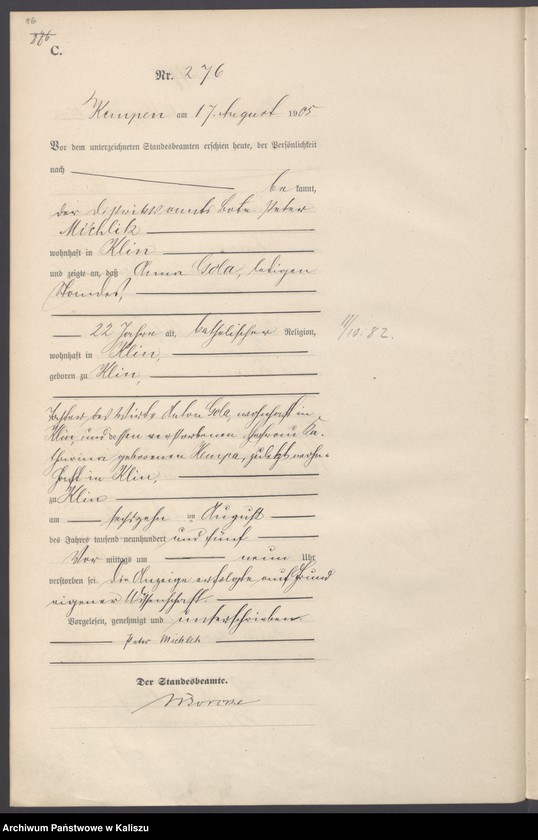 16
276
C.
Nr. 276
Kempen am 17. August 1905
Vor dem unterzeichneten Standesbeamten erschien heute, der Persönlichkeit
nach be kannt,
der Distriktsamts bote Peter
Michlik
wohnhaft in Klin
und zeigte an, daß Anna Gola, ledigen
Standes,
22 Jahre alt, katholischer Religion,
11/10. 82.
wohnhaft in Klin,
geboren zu Klin,
Tochter des Wirts Anton Gola, wohnhaft in
Klin, und dessen verstorbenen Ehefrau Ka-
tharina geborenen Kempa, zuletzt wohn-
haft in Klin,
zu Klin
am sechszehn ten August
des Jahres tausend neunhundert und fünf
Vor mittags um neun Uhr
verstorben sei. Die Anzeige erfolgte auf Grund
eigener Wissenschaft.
Vorgelesen, genehmigt und unterschrieben
Peter Michlik
Der Standesbeamte.
Archiwum Państwowe w Kaliszu